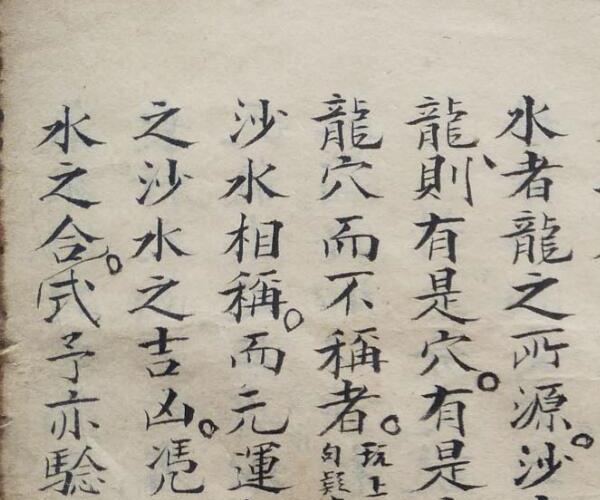 水者龍之所源。沙
龍則有是穴。有是
龍穴而不稱者。玩上句疑
沙水相稱。而元運
之沙水之吉凶。凭
水之合。式予亦驗